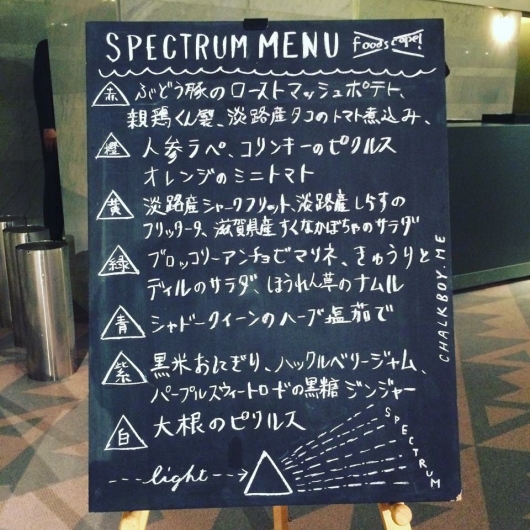 SPECTRUM MENU
foodscape!
赤 ぶどう豚のローストマッシュポテト、
親鶏くん製、淡路産タコのトマト煮込み、
橙 人参ラペ、コリンキーのピクルス
オレンジのミニトマト
黄 淡路産シャークフリット、淡路産しらすの
フリッタータ、滋賀県産すくなかぼちゃのサラダ
緑 ブロッコリーアンチョビマリネ、きゅうりと
ディルのサラダ、ほうれん草のナムル
青 シャドークイーンのハーブ塩茹で
紫 黒米おにぎり、ハックルベリージャム、
パープルスウィートロゼの黒糖ジンジャー
白 大根のピクルス
light
SPECTRUM
CHALKBOY.ME